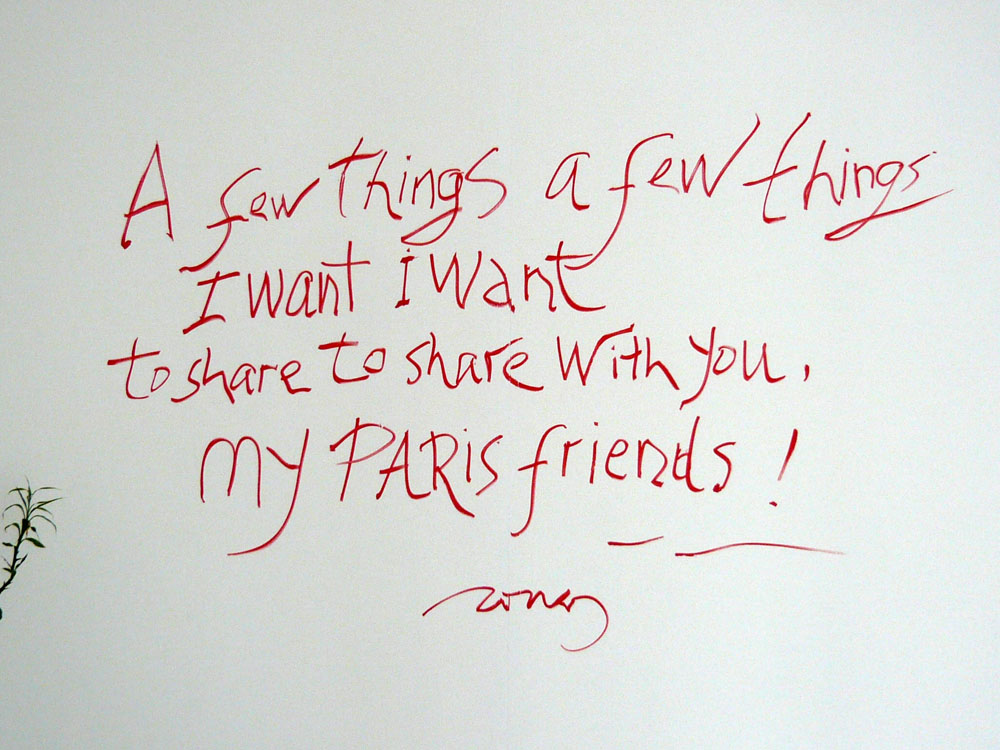 A few things a few things
I want i want
to share to share with you,
my PARiS friends !